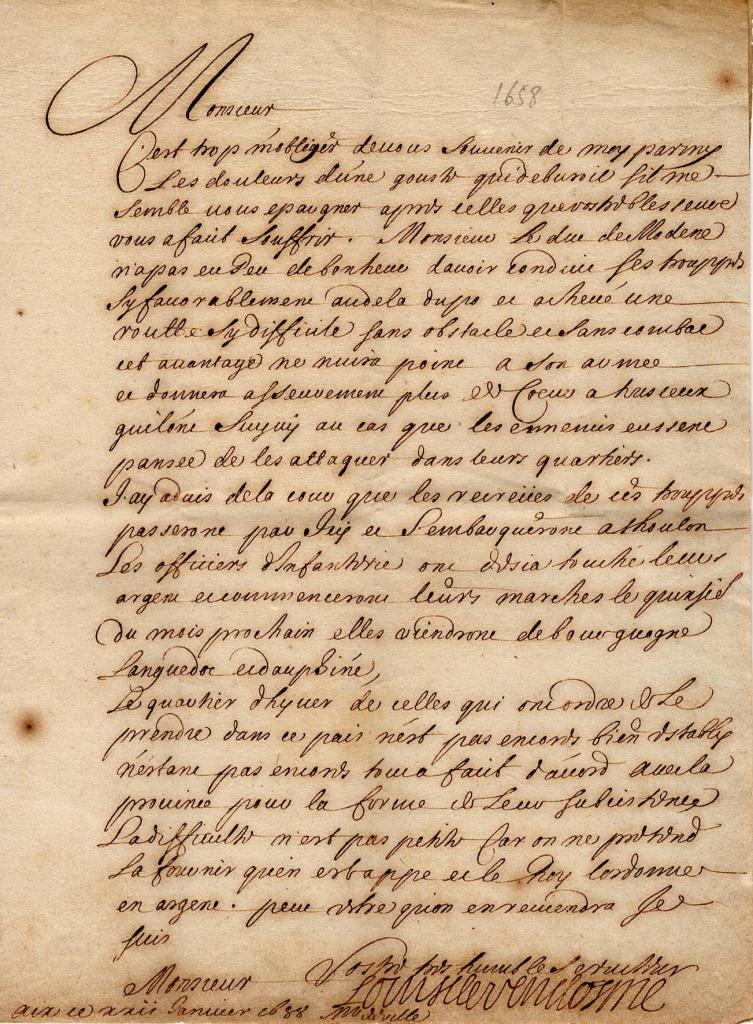 Monsieur
1658
Cest trop mobliger de vous souvenir de moy parmy
Les douleurs dune goutte qui debvroit sit me
semble vous epargner apres celles que vostre blesseure
vous a fait souffrir. Monsieur Le duc de Modene
n'a pas eu peu de bonheur davoir conduit ses trouppes
sy favorablement audela du po et acheué une
routte sy difficile sans obstacle et sans combat
cet auantage ne nuira point a son armee
et donnera asseurement plus de Coeur a tous ceux
qui lont suyuy au cas que les ennemis eussent
pansee de les attaquer dans leurs quartiers.
J'ay aduis de la cour que les recreües de ces trouppes
passeront par Icy et sembarqueront a thoulon
Les officiers dInfanterie ont desia touché leur
argent et commenceront leurs marches le quinsie
du mois prochain elles viendront de bourguogne
Languedoc et dauphiné,
Le quartier dhyuer de celles qui ont ordre de Le
prendre dans ce pais nest pas encores bien establiy
nestant pas encores tout a fait dacord auec la
prouince pour la forme de Leur subcistence
La difficulte n'est pas petite Car on ne pretend
La fournir quen estappe et le Roy lordonne
en argent. peut estre quion en reuiendra Je
suis
Monsieur Vostre tres humble seruiteur
Louis de vendosme
aix ce xxii Januier 1658